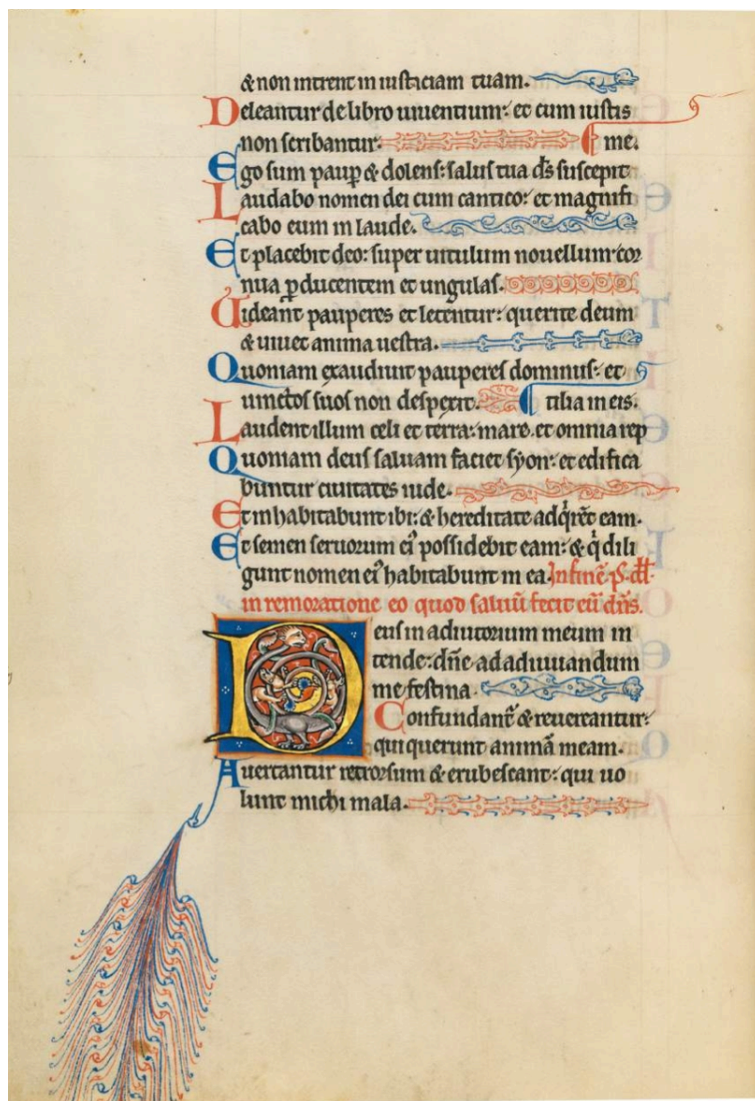 & non intrent in iusticiam tuam.
Deleantur de libro uiuentium: et cum iustis
non scribantur. me.
Ego sum paup & dolens: salus tua ds suscepit
Laudabo nomen dei cum cantico: et magnifi
cabo eum in laude.
Et placebit deo: super uitulum nouellum cor
nua pducentem et ungulas.
Uideant pauperes et letentur: querite deum
& uiuet anima uestra.
Quoniam exaudiuit pauperes dominus: et
uinctos suos non despexit. tilia in eis.
Laudent illum celi et terra: mare. et omnia rep
Quoniam deus saluam faciet syon: et edifica
buntur ciuitates iude.
Et inhabitabunt ibi: & hereditate adqirēt eam.
Et semen seruorum ei' possidebit eam: & qi dili
gunt nomen ei' habitabunt in ea. In finē ps. dd
in remoratione eo quod saluū fecit eū dn̄s.
Deus in adiutorium meum in
tende: dn̄e ad adiuuandum
me festina.
Confundant̄ & reuereantur:
qui querunt animā meam.
Auertantur retrorsum & erubescant: qui uo
lunt michi mala.